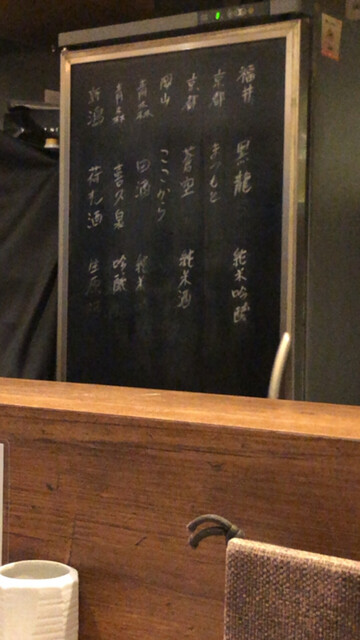 福井 黒龍 純米吟醸
京都 まつもと
京都 蒼空 純米酒
岡山 ここから
青森 田酒 純米
青森 喜久泉 吟醸
新潟 荷札酒 生原酒